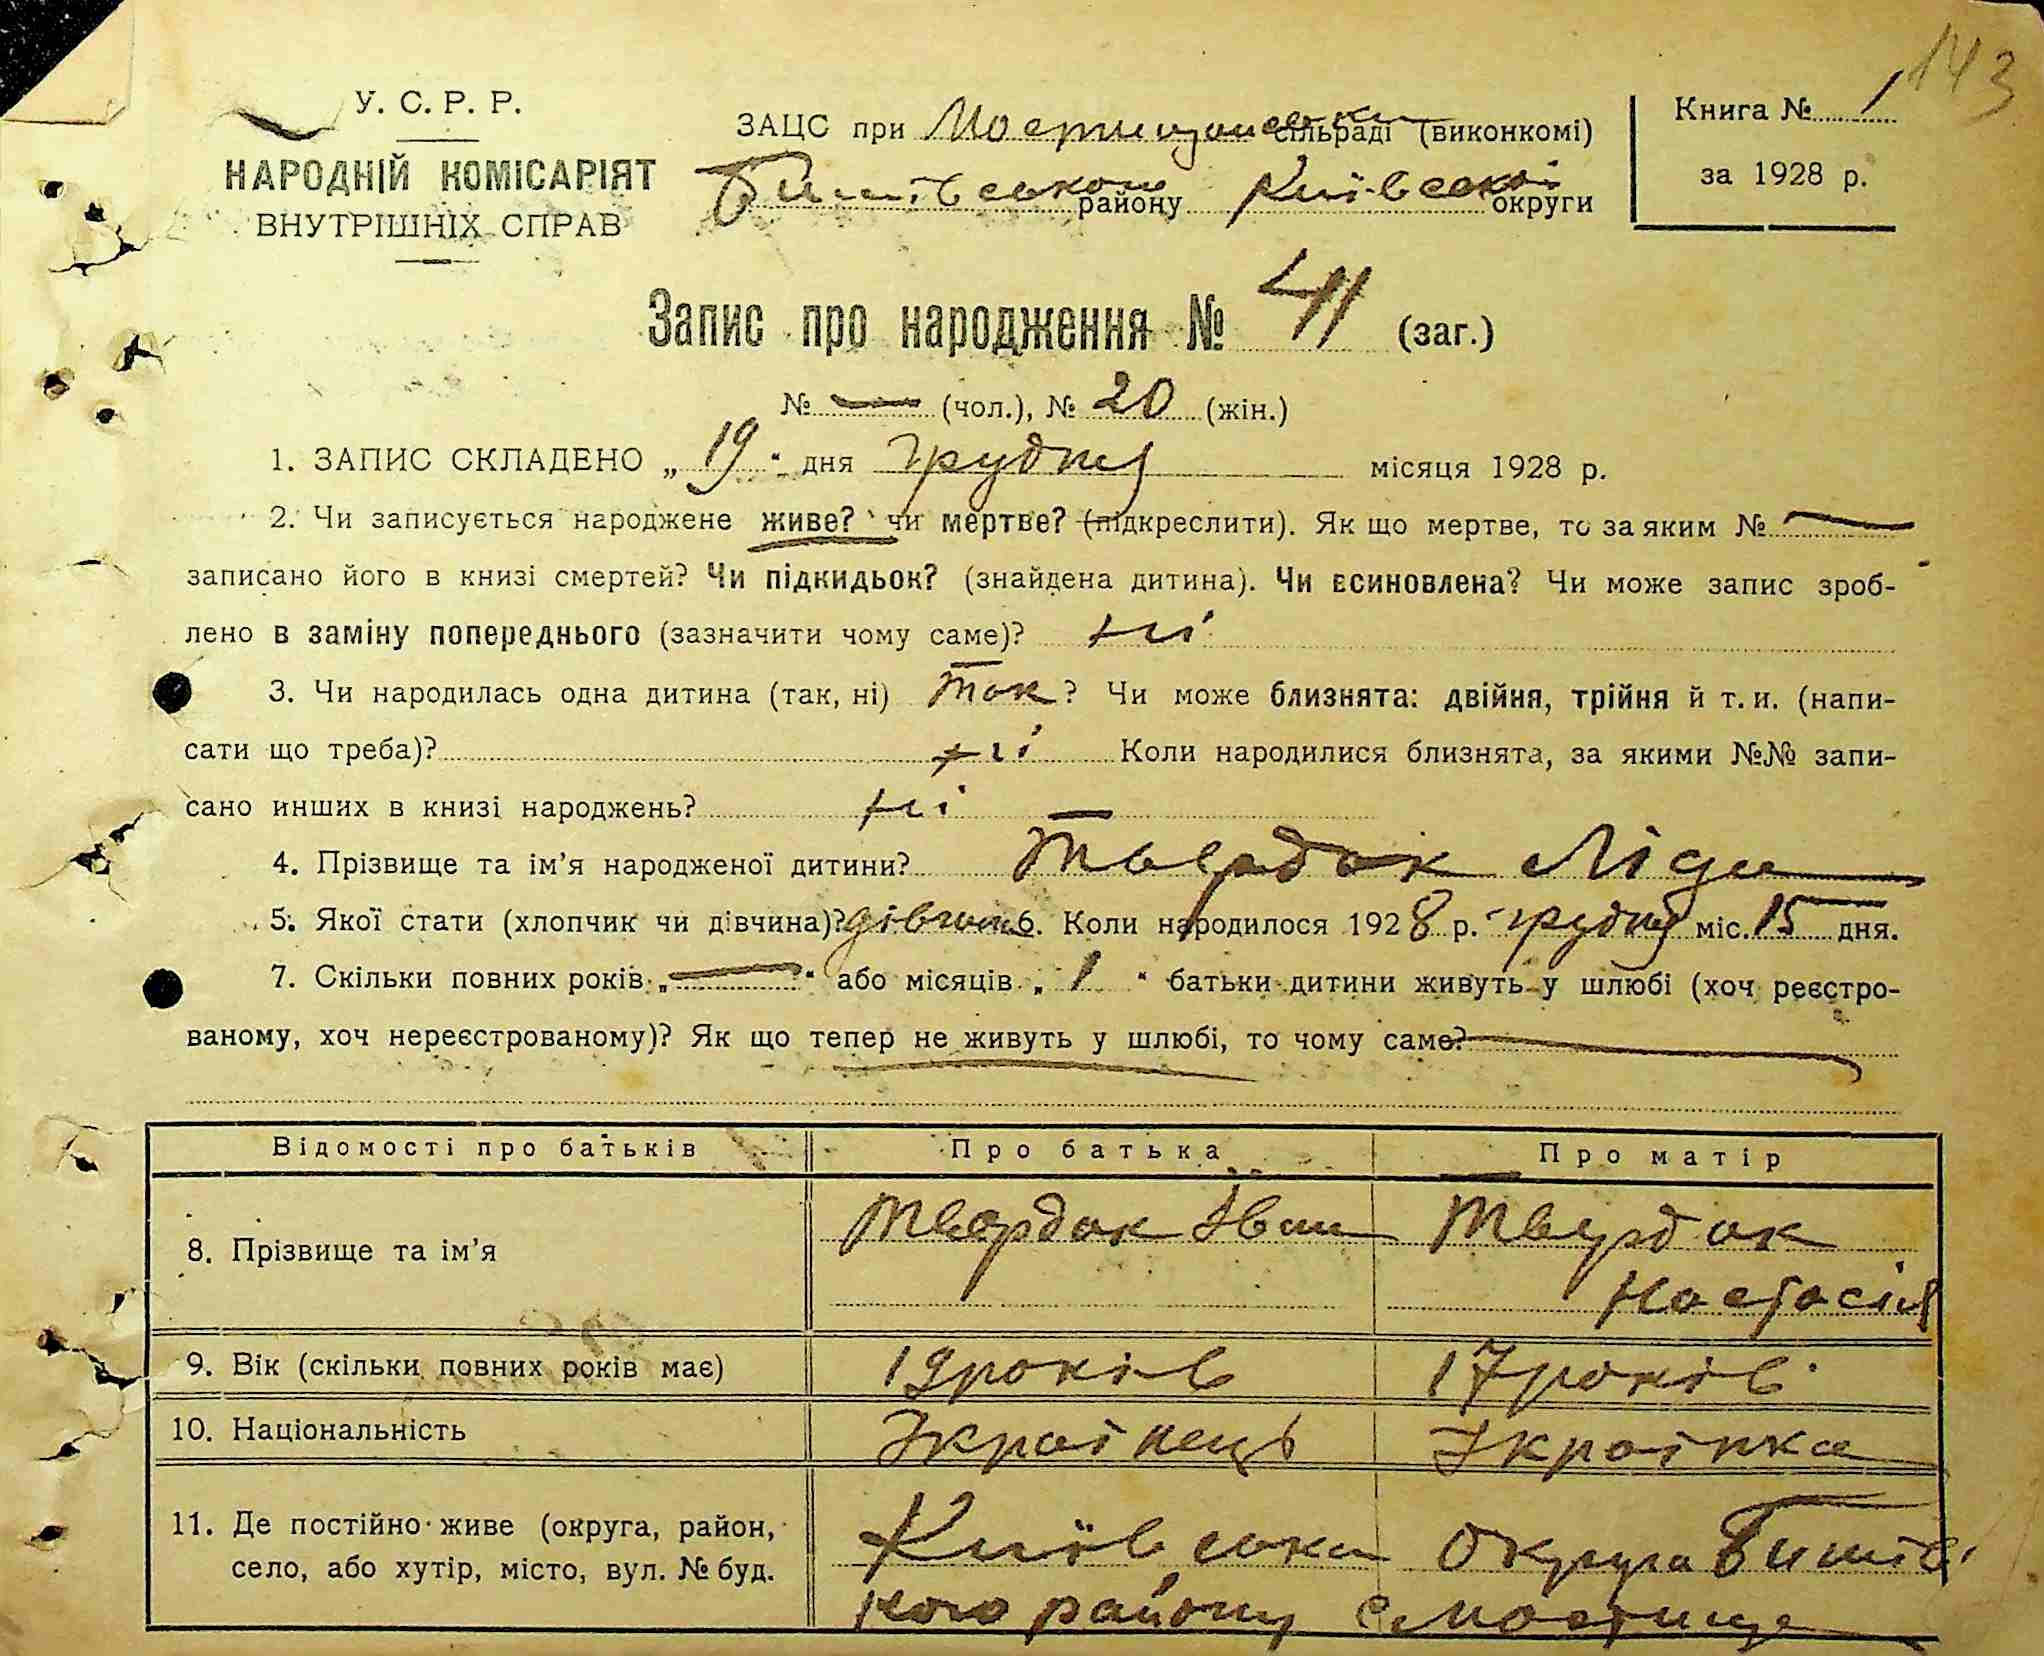 143
У. С. Р. Р.
НАРОДНІЙ КОМІСАРІЯТ
ВНУТРІШНІХ СПРАВ
ЗАЦС при сільраді (виконкомі)
району Київської округи
Книга № 1
за 1928 р.
Запис про народження № 41 (заг.)
№ — (чол.), № 20 (жін.)
1. ЗАПИС СКЛАДЕНО „ 19 “ дня грудня місяця 1928 р.
2. Чи записується народжене живе? чи мертве? (підкреслити). Як що мертве, то за яким № —
записано його в книзі смертей? Чи підкидьок? (знайдена дитина). Чи всиновлена? Чи може запис зроб-
лено в заміну попереднього (зазначити чому саме)? ні
3. Чи народилась одна дитина (так, ні) так ? Чи може близнята: двійня, трійня й т. и. (напи-
сати що треба)? ні Коли народилися близнята, за якими №№ запи-
сано инших в книзі народжень? ні
4. Прізвище та ім’я народженої дитини? Твердак Ліда
5. Якої стати (хлопчик чи дівчина)? дівчина 6. Коли народилося 1928 р. грудня міс. 15 дня.
7. Скільки повних років „ — “ або місяців „ 1 “ батьки дитини живуть у шлюбі (хоч реєстро-
ваному, хоч нереєстрованому)? Як що тепер не живуть у шлюбі, то чому саме? —
Відомості про батьків Про батька Про матір
8. Прізвище та ім’я Твердак Іван Твердак
Настасія
9. Вік (скільки повних років має) 19 років 17 років
10. Національність Українець Українка
11. Де постійно живе (округа, район, Київська округа
село, або хутір, місто, вул. № буд. кого району с Мостище